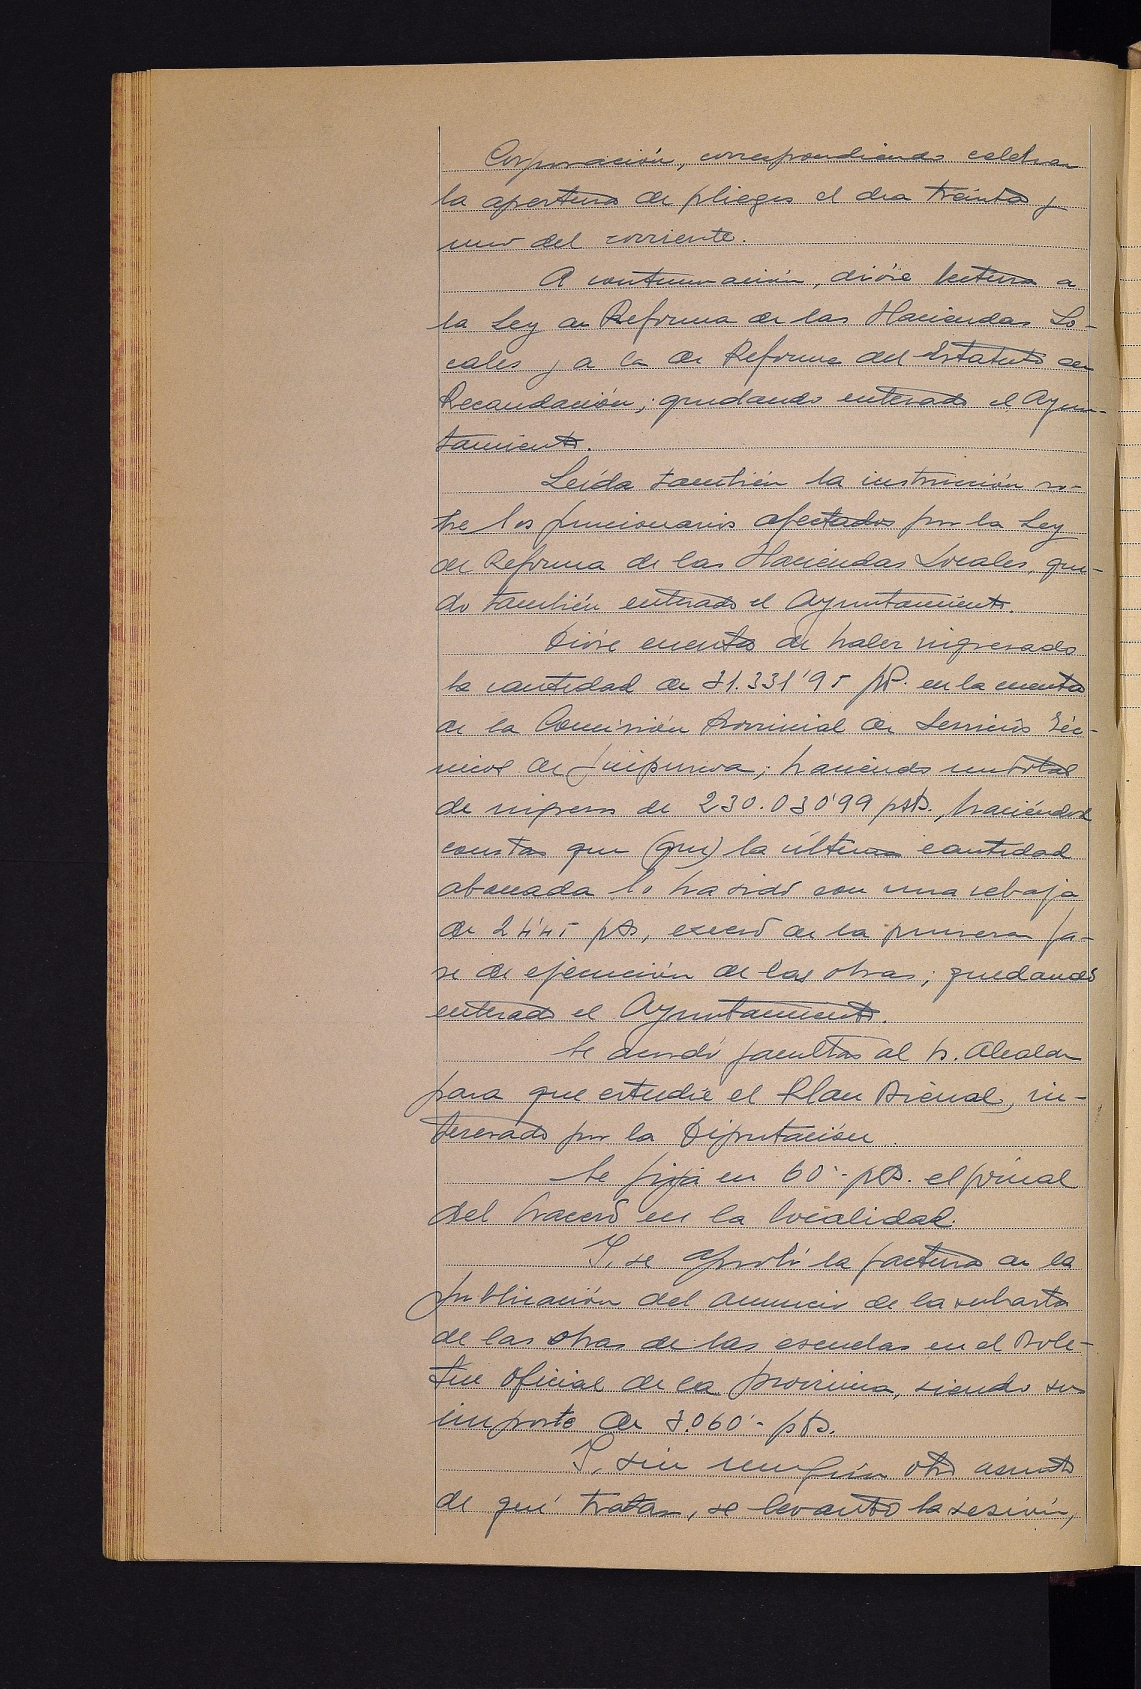 Corporación, correspondiendo celebrar
la apertura de pliegos el dia treinta y
uno del corriente.
A continuación, dióse lectura a
la Ley de Reforma de las Haciendas Lo-
cales y a la de Reforma del Estatuto de
Recaudación; quedando enterado el Ayun-
tamiento.
Leída también la instrucción so-
bre los funcionarios afectados por la Ley
de Reforma de las Haciendas Locales, que-
dó también enterado el Ayuntamiento.
Dióse cuenta de haber ingresado
la cantidad de 31.331'95 pts. en la cuenta
de la Comisión Provincial de Servicios Téc-
nicos de Guipuzcoa; haciendo un total
de ingresos de 230.030'99 ptas., haciéndose
constar que (que) la última cantidad
abonada lo ha sido con una rebaja
de pts, exceso de la primera fa-
se de ejecución de las obras; quedando
enterado el Ayuntamiento.
Se acordó facultar al Sr. Alcalde
para que estudie el Plan Bienal, in-
teresado por la Diputación.
Se fija en 60'- pts. el jornal
del bracero en la localidad.
Y, se aprobó la factura de la
publicación del anuncio de la subasta
de las obras de las escuelas en el Bole-
tin Oficial de la provincia, siendo su
importe de 3.060'- pts.
Y, sin ningún otro asunto
de qué tratar, se levantó la sesión,